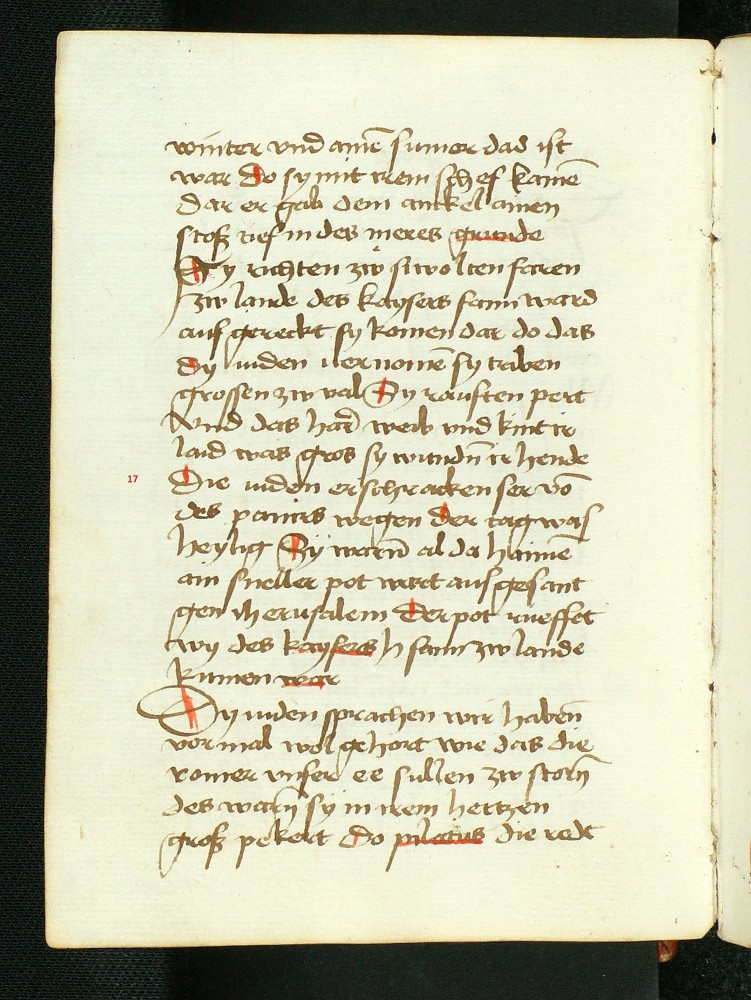 winter vnd ainē sumer das ist
war do sy mit irem schef kamē
dar er gab dem anckel ainen
stoß tief in des meres grunde
Sy richten zw si wolten faren
zw lande des kaysers fann ward
auf gereckt sy komen dar do das
dy iuden vernomē sy traben
grossen zw val Sy rauften pert
vnd das har weib vnd kint ir
laid was gros sy wundn̄ ir hende
17 Die iuden erschracken ser vō
des paniers wegen der tag was
heylig Sy warn̄ al da haimē
ain sneller pot wart aus gesant
gen iherusalem Der pot rueffet
wy des kaysers h fann zw lande
kumen war
Dy iuden sprachen wir haben
vormal wol gehort wie das die
romer vnser ee sullen zw storn̄
des warn̄ sy in irem hertzen
groß pekert Do pilatus die redt